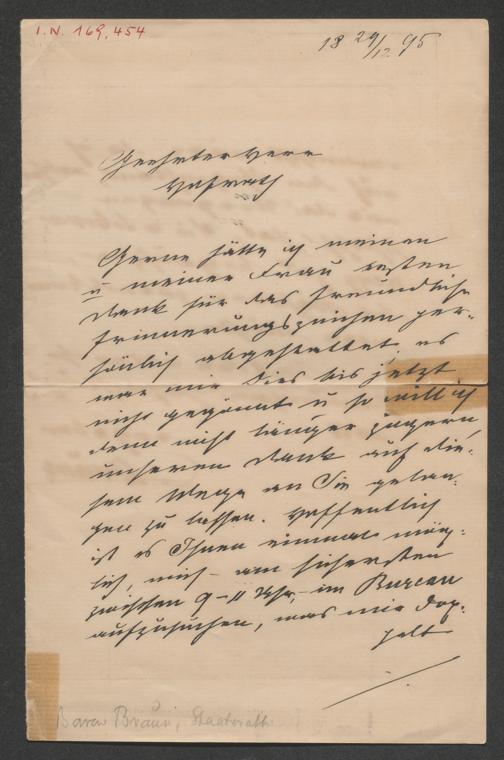 I.N. 169.454
18 29/12 95
Geehrter Herr
Hofrath
Gerne hätte ich meinen
u meiner Frau besten
Dank für das freundliche
Erinnerungszeichen per-
sönlich abgestattet es
war mir dies bis jetzt
nicht gegönnt u so will ich
denn nicht länger zögern
unseren Dank auf die-
sem Wege an Sie gelan-
gen zu lassen. Hoffentlich
ist es Ihnen einmal mög-
lich, mich – am sichersten
zwischen 9–11 Uhr, im Bureau
aufzusuchen, was mir dop-
pelt
Baron Braun, Staatsrath